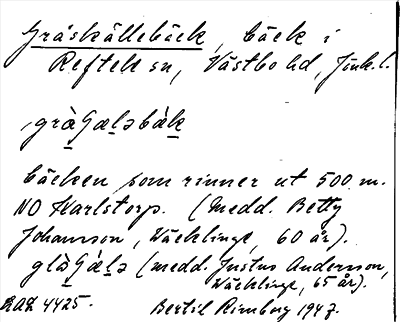 Gråskällebäck, bäck i
Reftele sn, Västbo hd, Jönk.l.
grà
bäcken som rinner ut 500 m.
NO Karlstorp. (Medd. Betty
Johansson, Väcklinge, 60 år).
(medd. Justus Andersson,
Väcklinge, 65 år).
RAÄ 4425. Bertil Rimborg 1947.